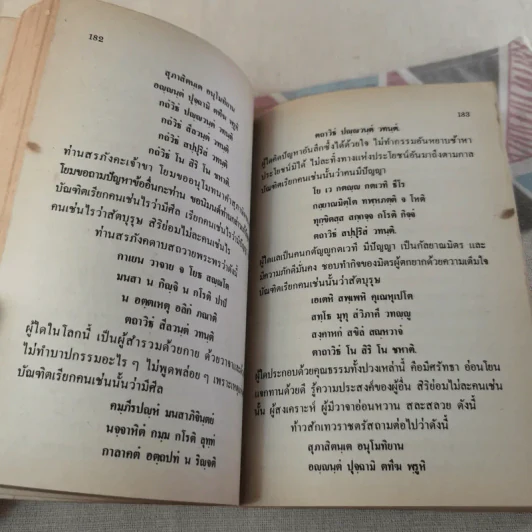 182
สุภาสิตนฺเต อนุโมทิยาน
อญฺญนฺตํ ปุจฺฉามิ ตทิงฺฆ พฺรูหิ
กถํวิธํ ปญฺญวนฺตํ วทนฺติ
กถํวิธํ สีลวนฺตํ วทนฺติ
กถํวิธํ สปฺปุริสํ วทนฺติ
กถํวิธํ โน สิริ โน ชหาติ.
ท่านสรภังคะเจ้าขา โยมขออนุโมทนาคำสุภาษิต
โยมขอถามปัญหาข้ออื่นกะท่าน ขอนิมนต์ท่าน
บัณฑิตเรียกคนเช่นไรว่ามีศีล เรียกคนเช่นไรว่ามีปัญญา
คนเช่นไรว่าสัตบุรุษ สิริย่อมไม่ละคนเช่นไร
ท่านสรภังคดาบสถวายพระพรว่าดังนี้
กาเยน วาจาย จ โยธ สญฺญโต
มนสา น กิญฺจิ น กโรติ ปาปํ
น อตฺตเหตุ อลิกํ ภณาติ
ตถาวิธํ สีลวนฺตํ วทนฺติ
ผู้ใดในโลกนี้ เป็นผู้สำรวมด้วยกาย ด้วยวาจา
ไม่ทำบาปกรรมอะไร ๆ ไม่พูดพล่อย ๆ เพราะเหตุ
บัณฑิตเรียกคนเช่นนั้นว่ามีศีล
คมฺภีรปญฺหํ มนสาภิจินฺตยํ
นจฺจาหิตํ กมฺม กโรติ ลุทฺทํ
กาลาคตํ อตฺถปทํ น ริญฺจติ
183
ตถาวิธํ ปญฺญวนฺตํ วทนฺติ.
ผู้ใดคิดปัญหาอันลึกซึ้งได้ด้วยใจ ไม่ทำกรรมอันหยาบช้าหา
ประโยชน์มิได้ ไม่ละทิ้งทางแห่งประโยชน์อันมาถึงตามกาล
บัณฑิตเรียกคนเช่นนั้นว่าคนมีปัญญา
โย เว กตญฺญู กตเวที ธีโร
กลฺยาณมิตฺโต ทฬฺหภตฺติ จ โหติ
ทุกฺขิตสฺส สกฺกจฺจ กโรติ กิจฺจํ
ตถาวิธํ สปฺปุริสํ วทนฺติ.
ผู้ใดแลเป็นคนกตัญญูกตเวที มีปัญญา เป็นกัลยาณมิตร และ
มีความภักดีมั่นคง ชอบทำกิจของมิตรผู้ตกยากด้วยความเต็มใจ
บัณฑิตเรียกคนเช่นนั้นว่าสัตบุรุษ
เอเตหิ สพฺเพหิ คุเณหุเปโต
สทฺโธ มุทุ สํวิภาคี วทญฺญู
สงฺคาหกํ สขิลํ สณฺหวาจํ
ตาถาวิธํ โน สิริ โน ชหาติ.
ผู้ใดประกอบด้วยคุณธรรมทั้งปวงเหล่านี้ คือมีศรัทธา อ่อนโยน
แจกทานด้วยดี รู้ความประสงค์ของผู้อื่น สิริย่อมไม่ละคนเช่น
นั้น ผู้สงเคราะห์ ผู้มีวาจาอ่อนหวาน สละสลวย ดังนี้
ท้าวสักเทวราชตรัสถามต่อไปว่าดังนี้
สุภาสิตนฺเต อนุโมทิยาน
อญฺญนฺตํ ปุจฺฉามิ ตทิงฺฆ พฺรูหิ